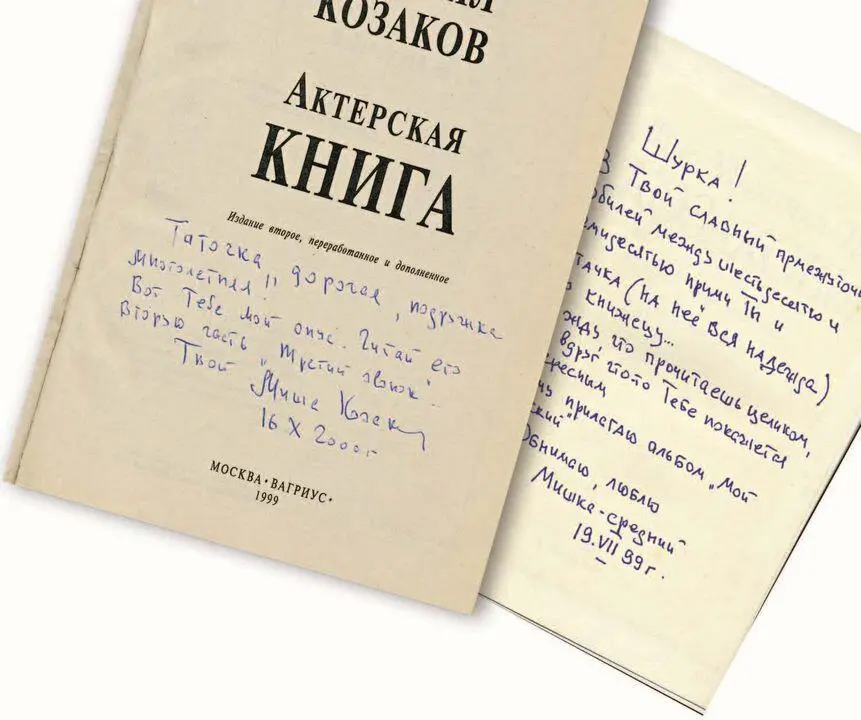 КОЗАКОВ
АКТЕРСКАЯ
КНИГА
Издание второе, переработанное и дополненное
Таточка, дорогая, подружка
многолетняя!
Вот Тебе мой опус. Читай его
вторую часть „Третий звонок".
Твой Миша Козаков
16 X 2000г
МОСКВА • ВАГРИУС •
1999
Шурка!
В Твой славный промежуточный
юбилей между шестьдесятью и
семидесятью прими Ты и
Таточка (на неё вся надежда)
книжецу...
жду что прочитаешь целиком,
вдруг что-то Тебе покажется
прилагаю альбом „Мой
ский"
Обнимаю, люблю
Мишка-средний
19.VII 99г.